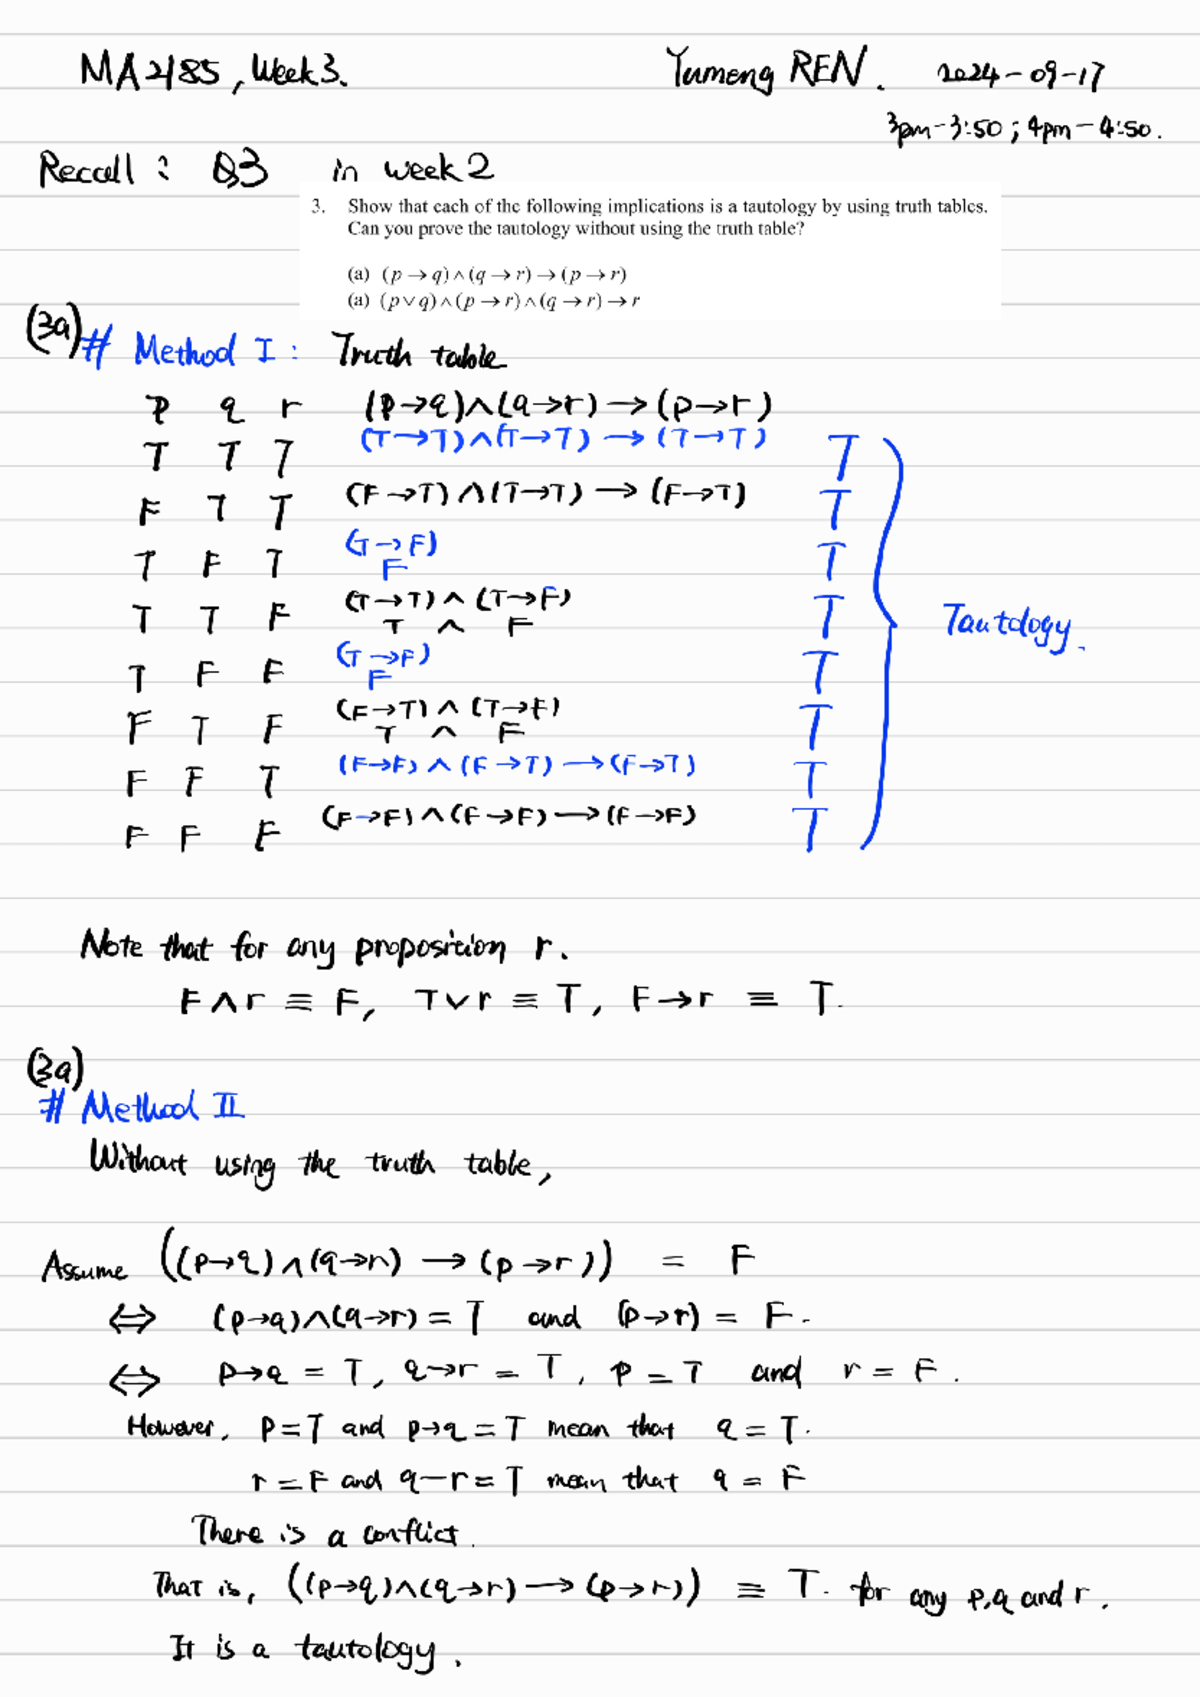 MA2185, Week 3. Yumeng REN. 2024-09-17
3pm-3:50; 4pm-4:50.
Recall: Q3 in week 2
3. Show that each of the following implications is a tautology by using truth tables.
Can you prove the tautology without using the truth table?
(a) (p → q) ∧ (q → r) → (p → r)
(a) (p ∨ q) ∧ (p → r) ∧ (q → r) → r
(3a) # Method I: Truth table
p q r (p→q)∧(q→r)→(p→r)
T T T (T→T)∧(T→T)→(T→T) T
F T T (F→T)∧(T→T)→(F→T) T
T F T (T→F) T
F
T T F (T→T)∧(T→F) T Tautology.
T ∧ F
T F F (T→F) T
F
F T F (F→T)∧(T→F) T
T ∧ F
F F T (F→F)∧(F→T)→(F→T) T
F F F (F→F)∧(F→F)→(F→F) T
Note that for any proposition r.
F∧r ≡ F, T∨r ≡ T, F→r ≡ T.
(3a)
# Method II
Without using the truth table,
Assume ((p→q)∧(q→r)→(p→r)) = F
⇔ (p→q)∧(q→r) = T and (p→r) = F.
⇔ p→q = T, q→r = T, p = T and r = F.
However, p=T and p→q=T mean that q = T.
r=F and q–r=T mean that q = F
There is a conflict.
That is, ((p→q)∧(q→r)→(p→r)) ≡ T. for any p,q and r.
It is a tautology.